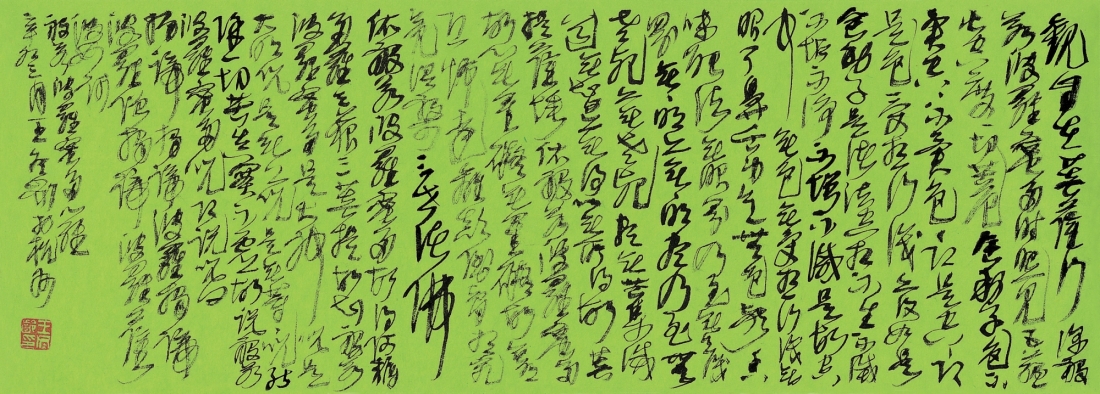 觀自在菩薩行深般
若波羅蜜多時照見五蘊
皆空度一切苦厄舍利子色不
異空空不異色色即是空空即
是色受想行識亦復如是
舍利子是諸法空相不生不滅
不垢不淨不增不減是故空
中無色無受想行識無
眼耳鼻舌身意無色聲香
味觸法無眼界乃至無意識
界無無明亦無無明盡乃至無
老死亦無老死盡無苦集滅
道無智亦無得以無所得故菩
提薩埵依般若波羅蜜多
故心無罣礙無罣礙故無
有恐怖遠離顛倒夢想究
竟涅槃三世諸佛
依般若波羅蜜多故得阿耨
多羅三藐三菩提故知般若
波羅蜜多是大神咒是
大明咒是無上咒是無等等咒能
除一切苦真實不虛故說般若
波羅蜜多咒即說咒曰
揭諦揭諦波羅揭諦
波羅僧揭諦
婆訶
般若波羅蜜多心經
辛卯三月王